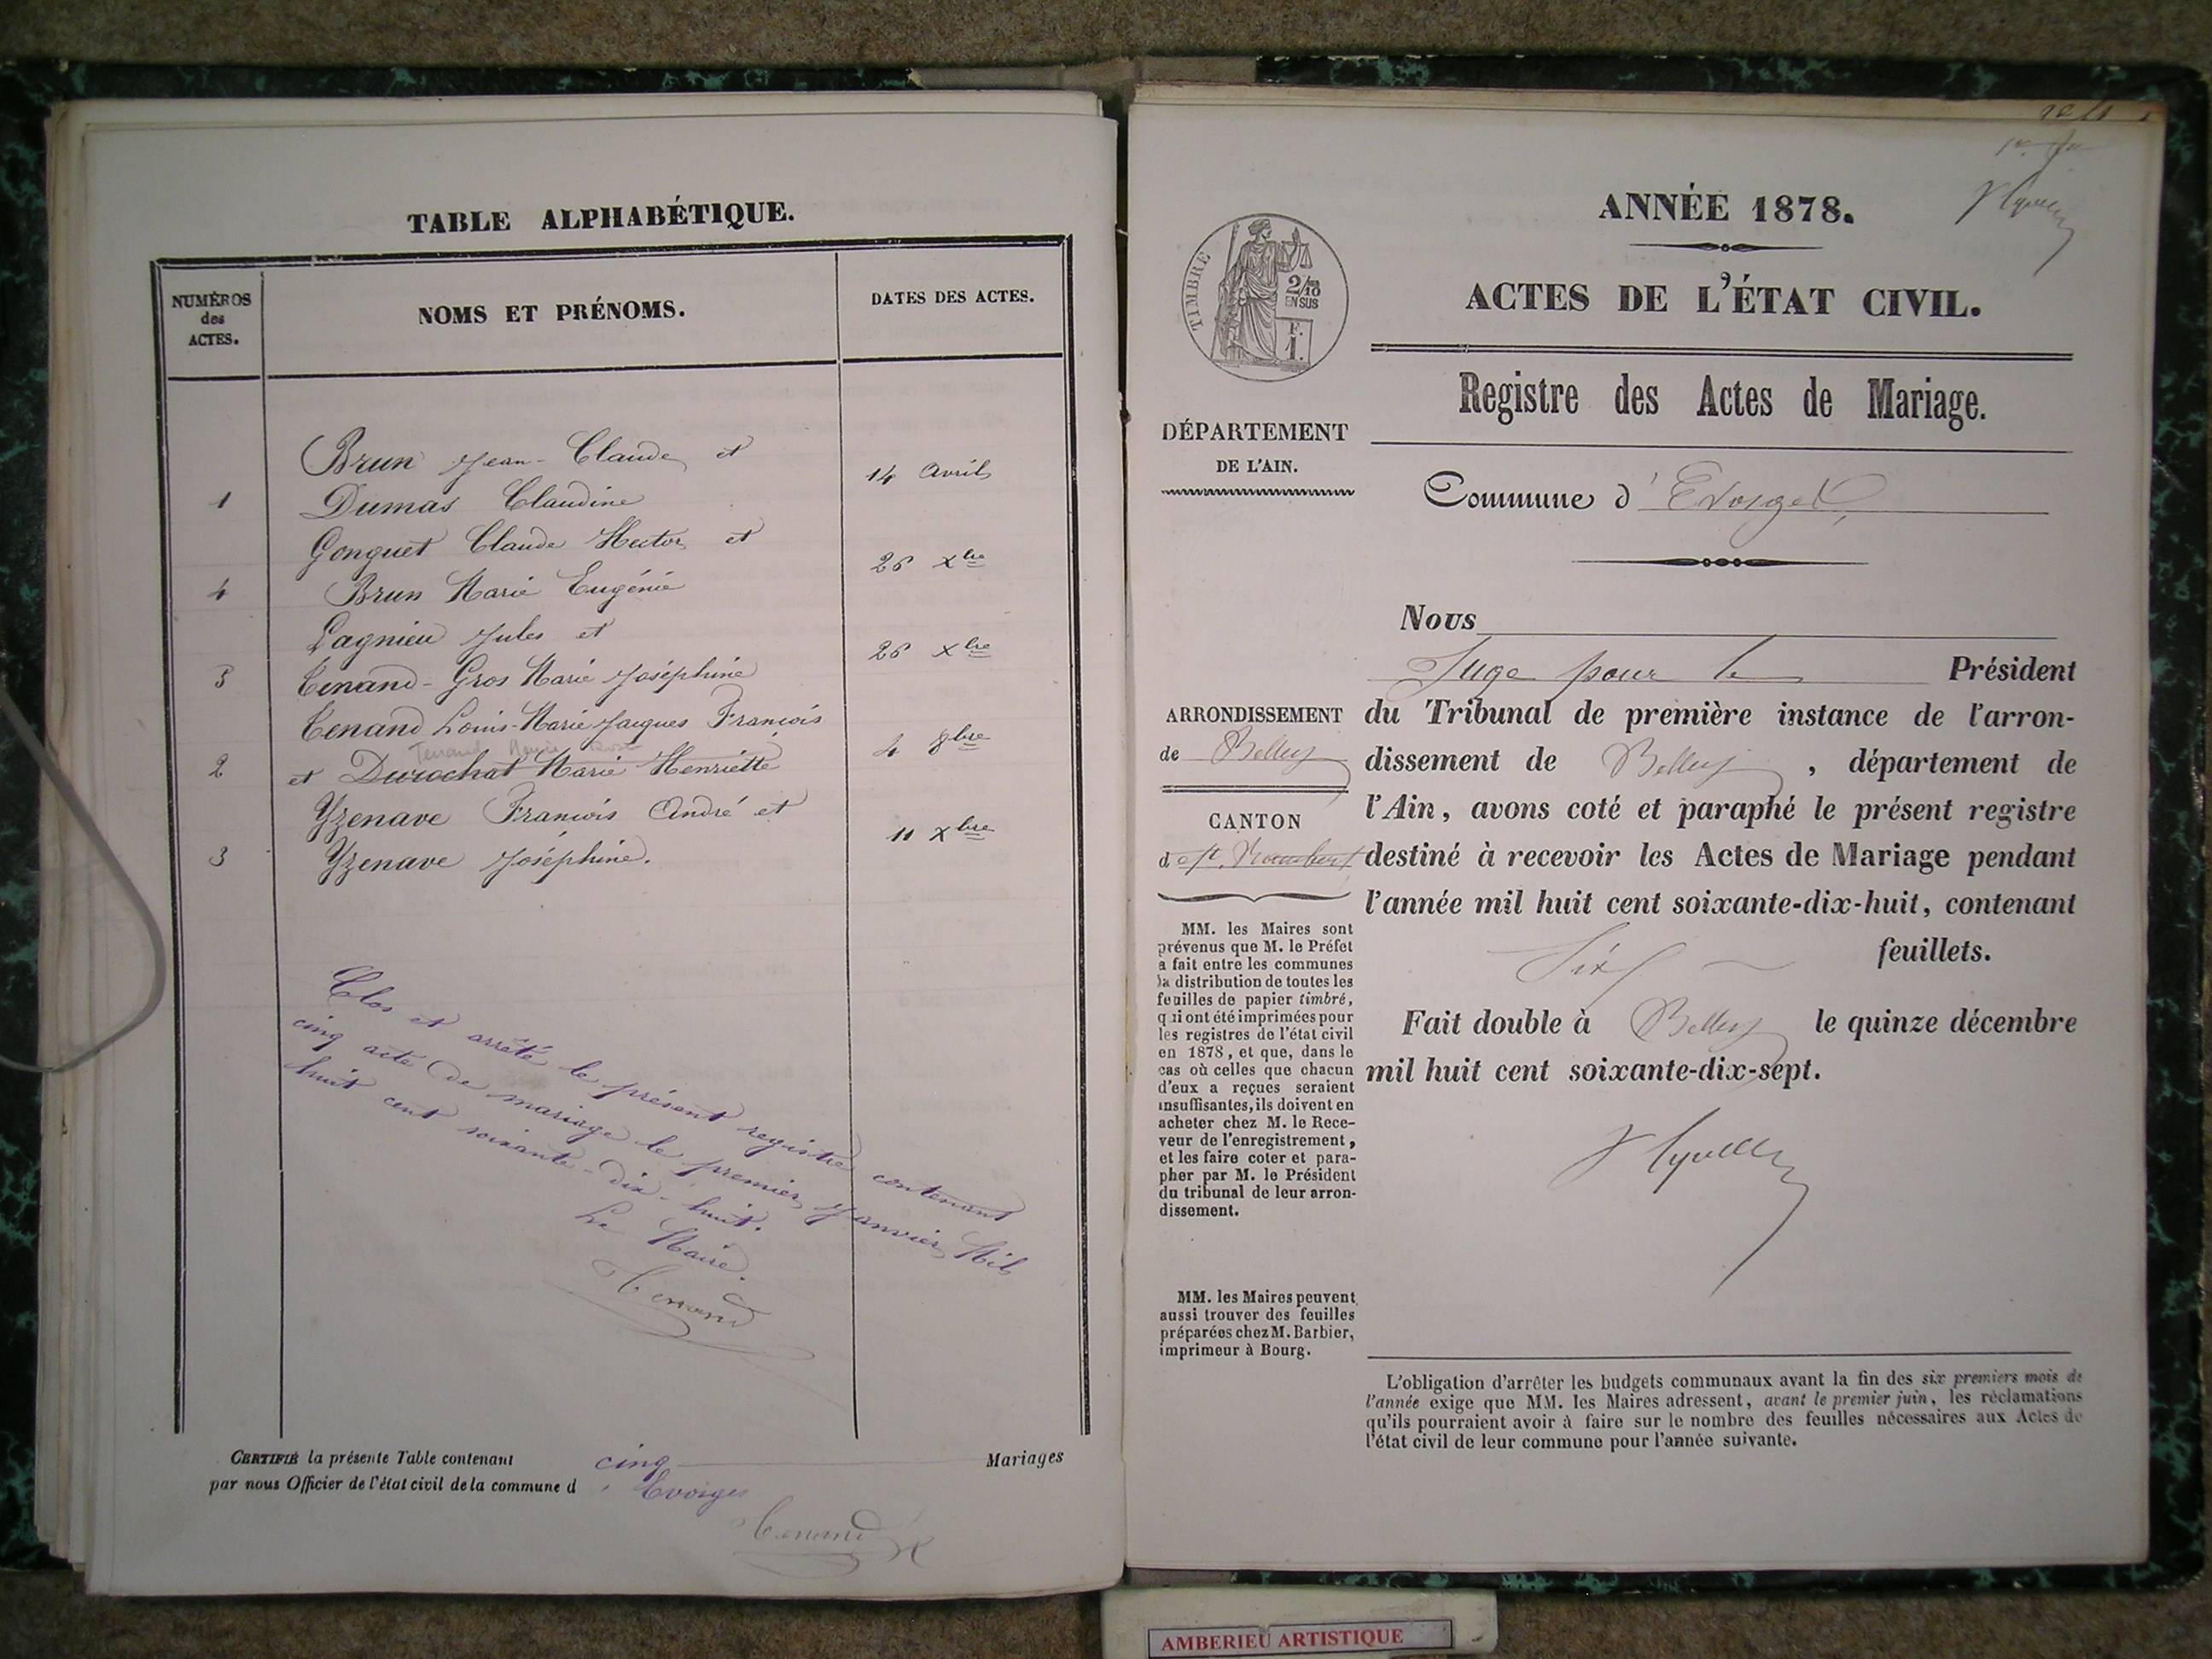 TABLE ALPHABÉTIQUE.
NUMÉROS
des
ACTES.
NOMS ET PRÉNOMS.
DATES DES ACTES.
Brun Jean-Claude et
1 Dumas Claudine 14 Avril
Gonguet Claude Hector et
4 Brun Marie Eugénie 26 Xbre
Lagnieu Jules et
3 Tenand-Gros Marie Joséphine 26 Xbre
Tenand Louis-Marie Jacques François
Tenand Marie
2 et Durochat Marie Henriette 4 8bre
Yzenave François André et
3 Yzenave Joséphine. 11 Xbre
Clos et arrêté le présent registre contenant
cinq acte de mariage le premier Janvier Mil
huit cent soixante-dix-huit.
Le Maire.
Tenand
CERTIFIÉ la présente Table contenant cinq Mariages
par nous Officier de l'état civil de la commune d'Evosges
Tenand
ANNÉE 1878.
TIMBRE
2/10
EN SUS
F.
1.
ACTES DE L'ÉTAT CIVIL.
Registre des Actes de Mariage.
DÉPARTEMENT
DE L'AIN.
Commune d'Evosges
Nous
Juge pour le Président
du Tribunal de première instance de l'arron-
dissement de Belley, département de
l'Ain, avons coté et paraphé le présent registre
destiné à recevoir les Actes de Mariage pendant
l'année mil huit cent soixante-dix-huit, contenant
Six feuillets.
Fait double à Belley le quinze décembre
mil huit cent soixante-dix-sept.
ARRONDISSEMENT
de Belley
CANTON
de St. Rambert
MM. les Maires sont
prévenus que M. le Préfet
a fait entre les communes
la distribution de toutes les
feuilles de papier timbré,
qui ont été imprimées pour
les registres de l'état civil
en 1878, et que, dans le
cas où celles que chacun
d'eux a reçues seraient
insuffisantes, ils doivent en
acheter chez M. le Rece-
veur de l'enregistrement,
et les faire coter et para-
pher par M. le Président
du tribunal de leur arron-
dissement.
MM. les Maires peuvent
aussi trouver des feuilles
préparées chez M. Barbier,
imprimeur à Bourg.
L'obligation d'arrêter les budgets communaux avant la fin des six premiers mois de
l'année exige que MM. les Maires adressent, avant le premier juin, les réclamations
qu'ils pourraient avoir à faire sur le nombre des feuilles nécessaires aux Actes de
l'état civil de leur commune pour l'année suivante.
AMBERIEU ARTISTIQUE